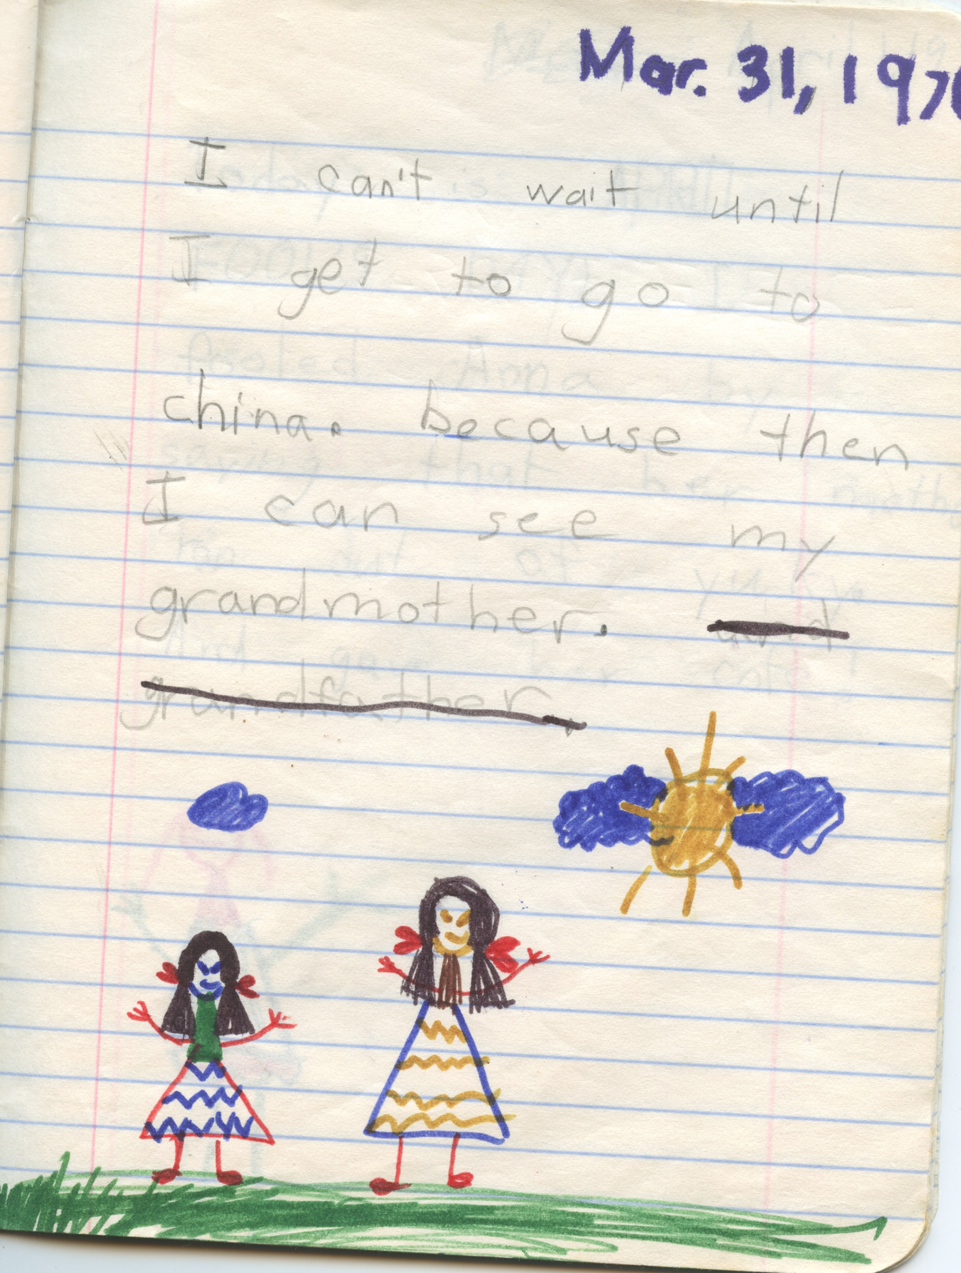 Mar. 31, 197
I can't wait until
I get to go to
china. because then
I can see my
grandmother. and
grandfather